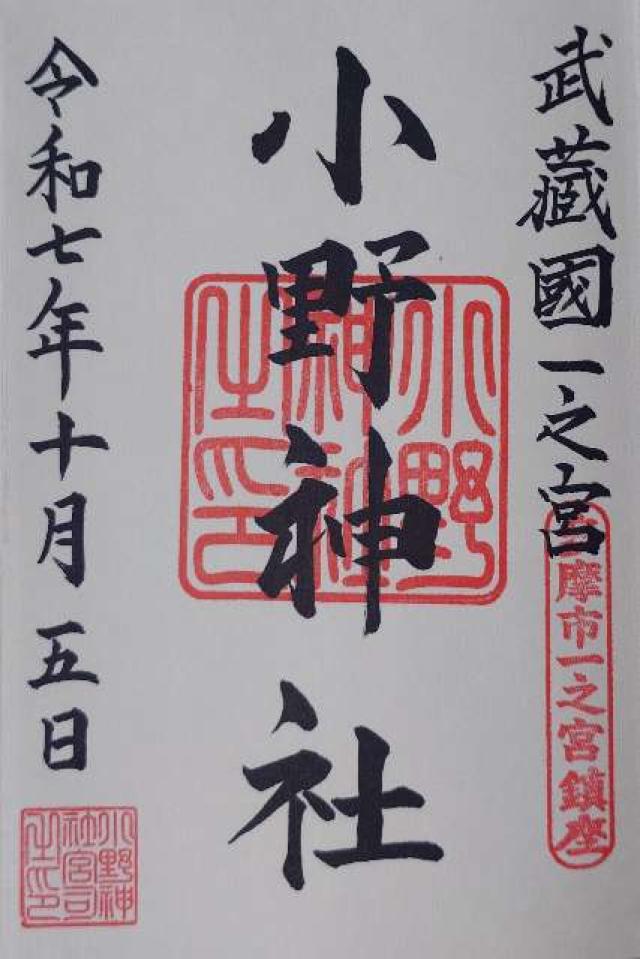 武藏國一之宮
摩市一之宮鎮座
小野神社
小野神社之印
令和七年十月五日
小野神社宮司之印